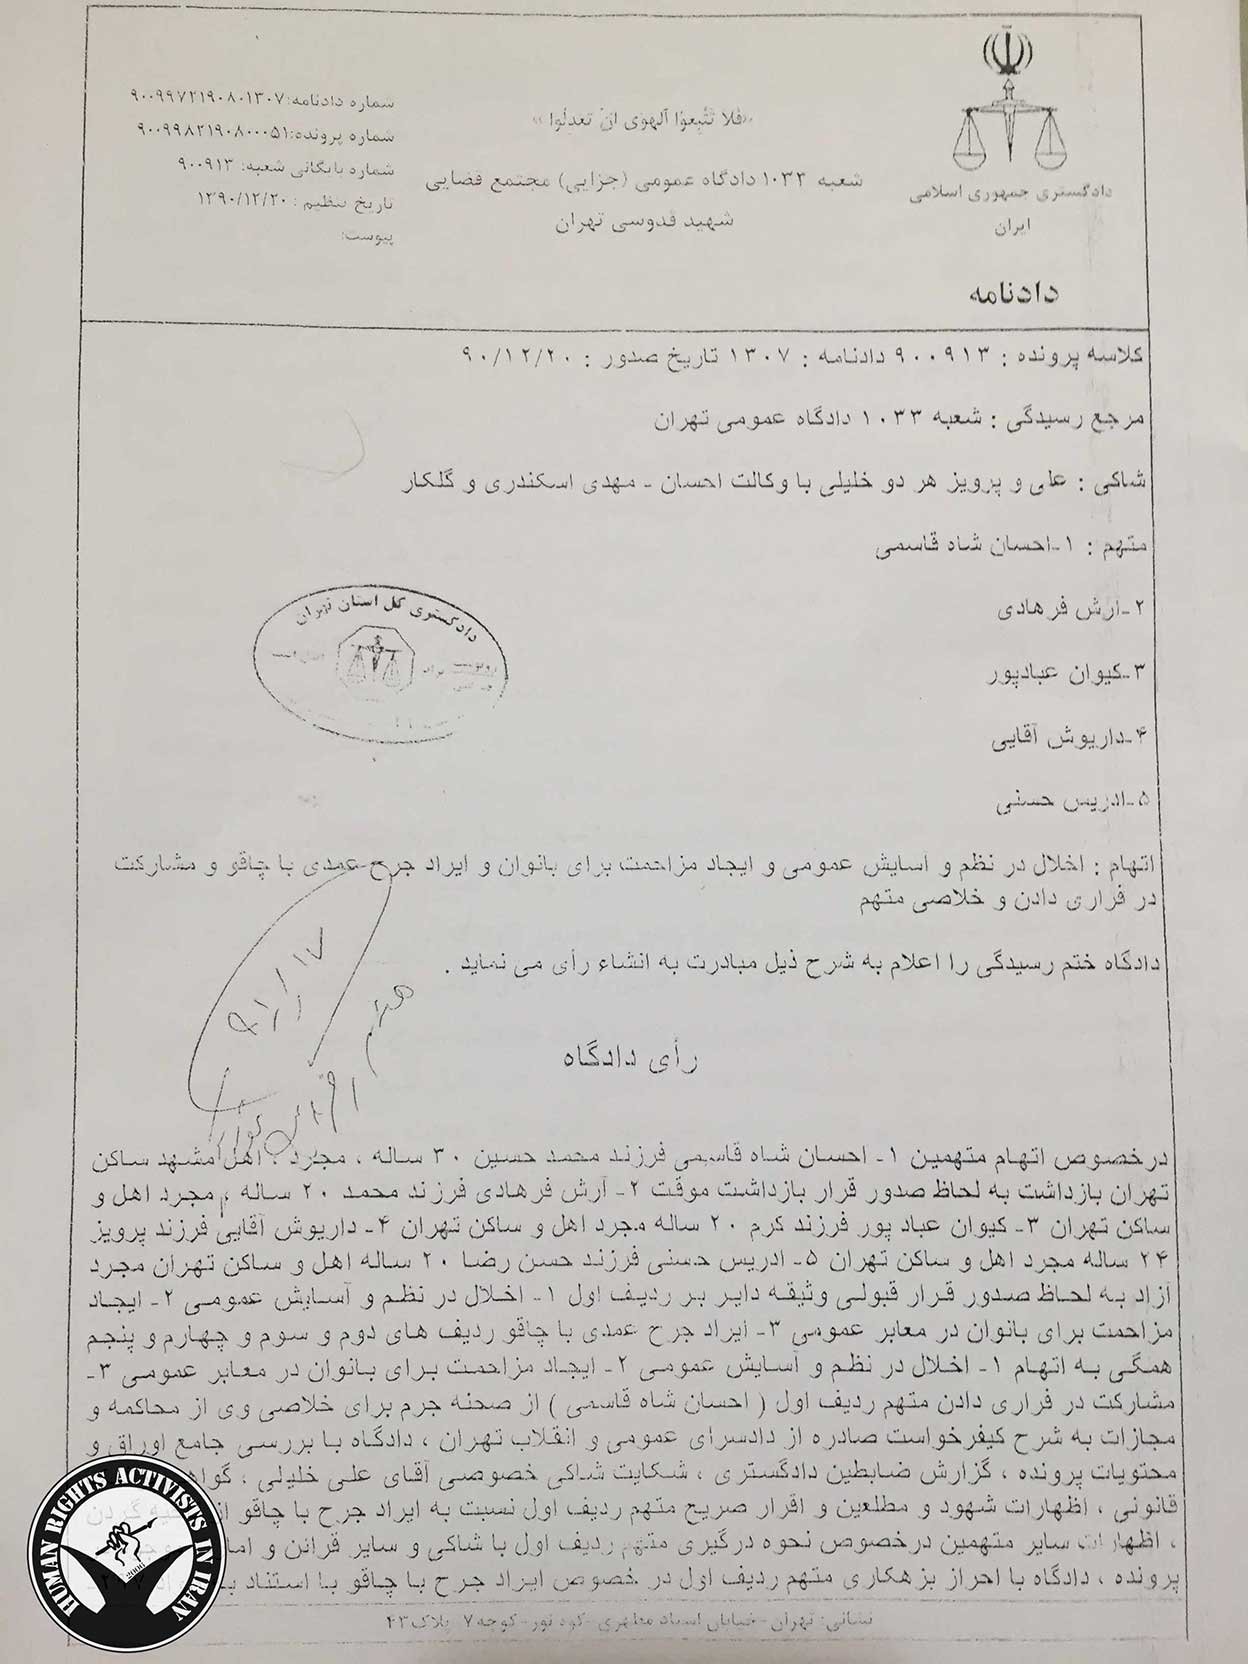 شماره دادنامه: ۹۰۰۹۹۷۲۱۹۰۸۰۱۳۰۷
شماره پرونده: ۹۰۰۹۹۸۲۱۹۰۸۰۰۰۵۱
شماره بایگانی شعبه: ۹۰۰۹۱۳
تاریخ تنظیم : ۱۳۹۰/۱۲/۲۰
پیوست:
«فَلا تَتَّبِعوُا اَلهَوی اَن تَعدِلُوا »
شعبه ۱۰۳۳ دادگاه عمومی (جزایی) مجتمع قضایی
شهید قدوسی تهران
دادگستری جمهوری اسلامی
ایران
دادنامه
کلاسه پرونده : ۹۰۰۹۱۳ دادنامه : ۱۳۰۷ تاریخ صدور : ۹۰/۱۲/۲۰
مرجع رسیدگی : شعبه ۱۰۳۳ دادگاه عمومی تهران
شاکی : علی و پرویز هر دو خلیلی با وکالت احسان - مهدی اسکندری و گلکار
متهم : ۱-احسان شاه قاسمی
۲-آرش فرهادی
۳-کیوان عبادپور
۴-داریوش آقایی
۵-ادریس حسنی
دادگستری کل استان تهران
اتهام : اخلال در نظم و آسایش عمومی و ایجاد مزاحمت برای بانوان و ایراد جرح عمدی با چاقو و مشارکت
در فراری دادن و خلاصی متهم
دادگاه ختم رسیدگی را اعلام به شرح ذیل مبادرت به انشاء رأی می نماید .
رأی دادگاه
درخصوص اتهام متهمین ۱- احسان شاه قاسمی فرزند محمد حسین ۳۰ ساله ، مجرد ، اهل مشهد ساکن
تهران بازداشت به لحاظ صدور قرار بازداشت موقت ۲- آرش فرهادی فرزند محمد ۲۰ ساله ، مجرد اهل و
ساکن تهران ۳- کیوان عباد پور فرزند کرم ۲۰ ساله مجرد اهل و ساکن تهران ۴- داریوش آقایی فرزند پرویز
۲۴ ساله مجرد اهل و ساکن تهران ۵- ادریس حسنی فرزند حسن رضا ۲۰ ساله اهل و ساکن تهران مجرد
آزاد به لحاظ صدور قرار قبولی وثیقه دایر بر ردیف اول ۱- اخلال در نظم و آسایش عمومی ۲- ایجاد
مزاحمت برای بانوان در معابر عمومی ۳- ایراد جرح عمدی با چاقو ردیف های دوم و سوم و چهارم و پنجم
همگی به اتهام ۱- اخلال در نظم و آسایش عمومی ۲- ایجاد مزاحمت برای بانوان در معابر عمومی ۳-
مشارکت در فراری دادن متهم ردیف اول ( احسان شاه قاسمی ) از صحنه جرم برای خلاصی وی از محاکمه و
مجازات به شرح کیفرخواست صادره از دادسرای عمومی و انقلاب تهران ، دادگاه با بررسی جامع اوراق و
محتویات پرونده ، گزارش ضابطین دادگستری ، شکایت شاکی خصوصی آقای علی خلیلی ،
قانونی ، اظهارات شهود و مطلعین و اقرار صریح متهم ردیف اول نسبت به ایراد جرح با چاقو از گردن
، اظهارات سایر متهمین درخصوص نحوه درگیری متهم ردیف اول با شاکی و سایر قرائن و
پرونده ، دادگاه با احراز بزهکاری متهم ردیف اول در خصوص ایراد جرح با چاقو با استناد
نشانی: تهران-خیابان استاد مطهری-کوه نور-کوچه۷- پلاک۴۳
HUMAN RIGHTS ACTIVISTS IN IRAN
2006